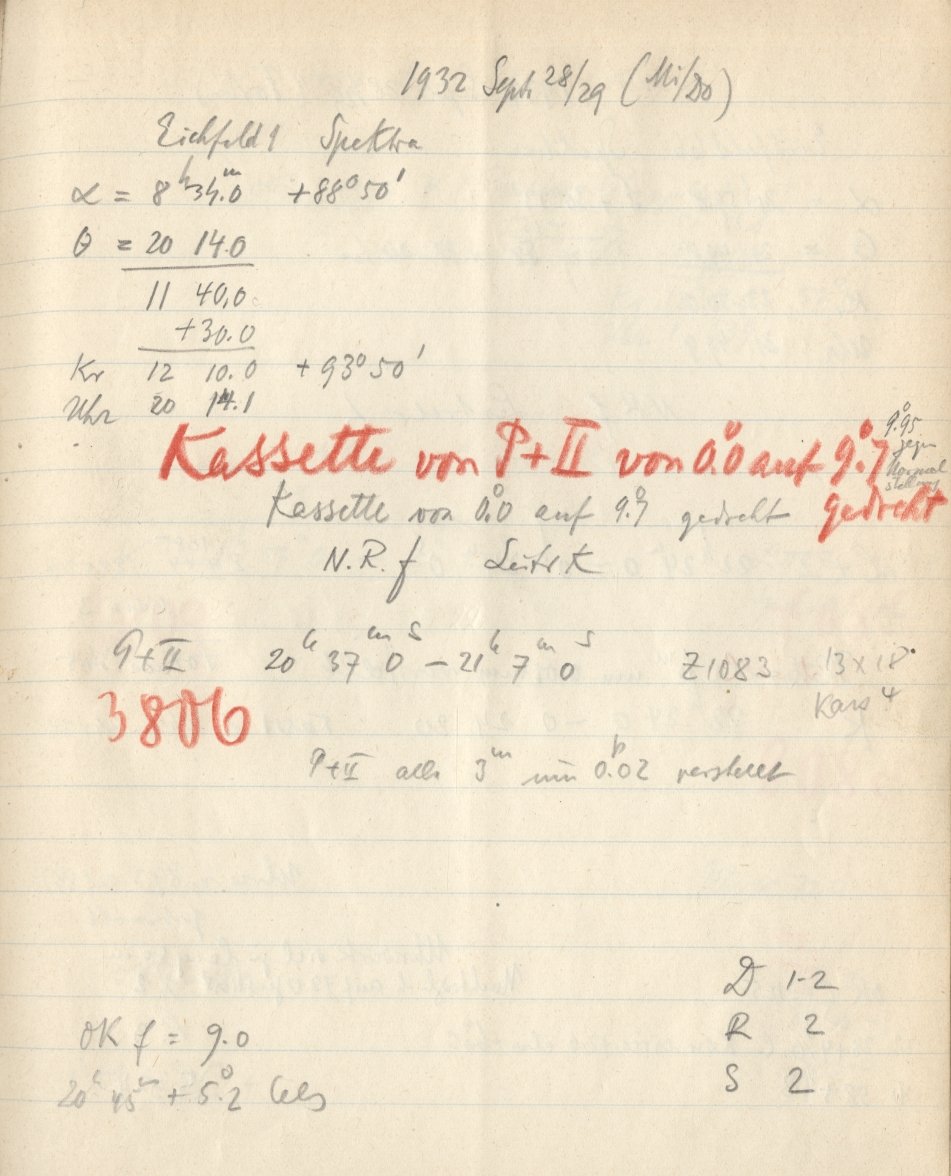 1932 Sept 28/29 (Mi/Do)
Eichfeld 1 Spektra
α = 8ʰ 34.0ᵐ +88° 50'
θ = 20 14.0
11 40,0
+30.0
Kr 12 10.0 +93° 50'
Uhr 20 14.1
Kassette von P+II von 0.°0 auf 9.°7 gedreht
9.°95 gegen Normalstellung
Kassette von 0.°0 auf 9.°7 gedreht
N.R. f Leitr. K
P+II 20ʰ 37ᵐ 0ˢ – 21ʰ 7ᵐ 0ˢ Z1083 13×18
Kass 4
3806
P+II alle 3ᵐ um 0.02 verstellt
D 1-2
R 2
S 2
OK f = 9.0
20ʰ 45ᵐ + 5.°2 Cels